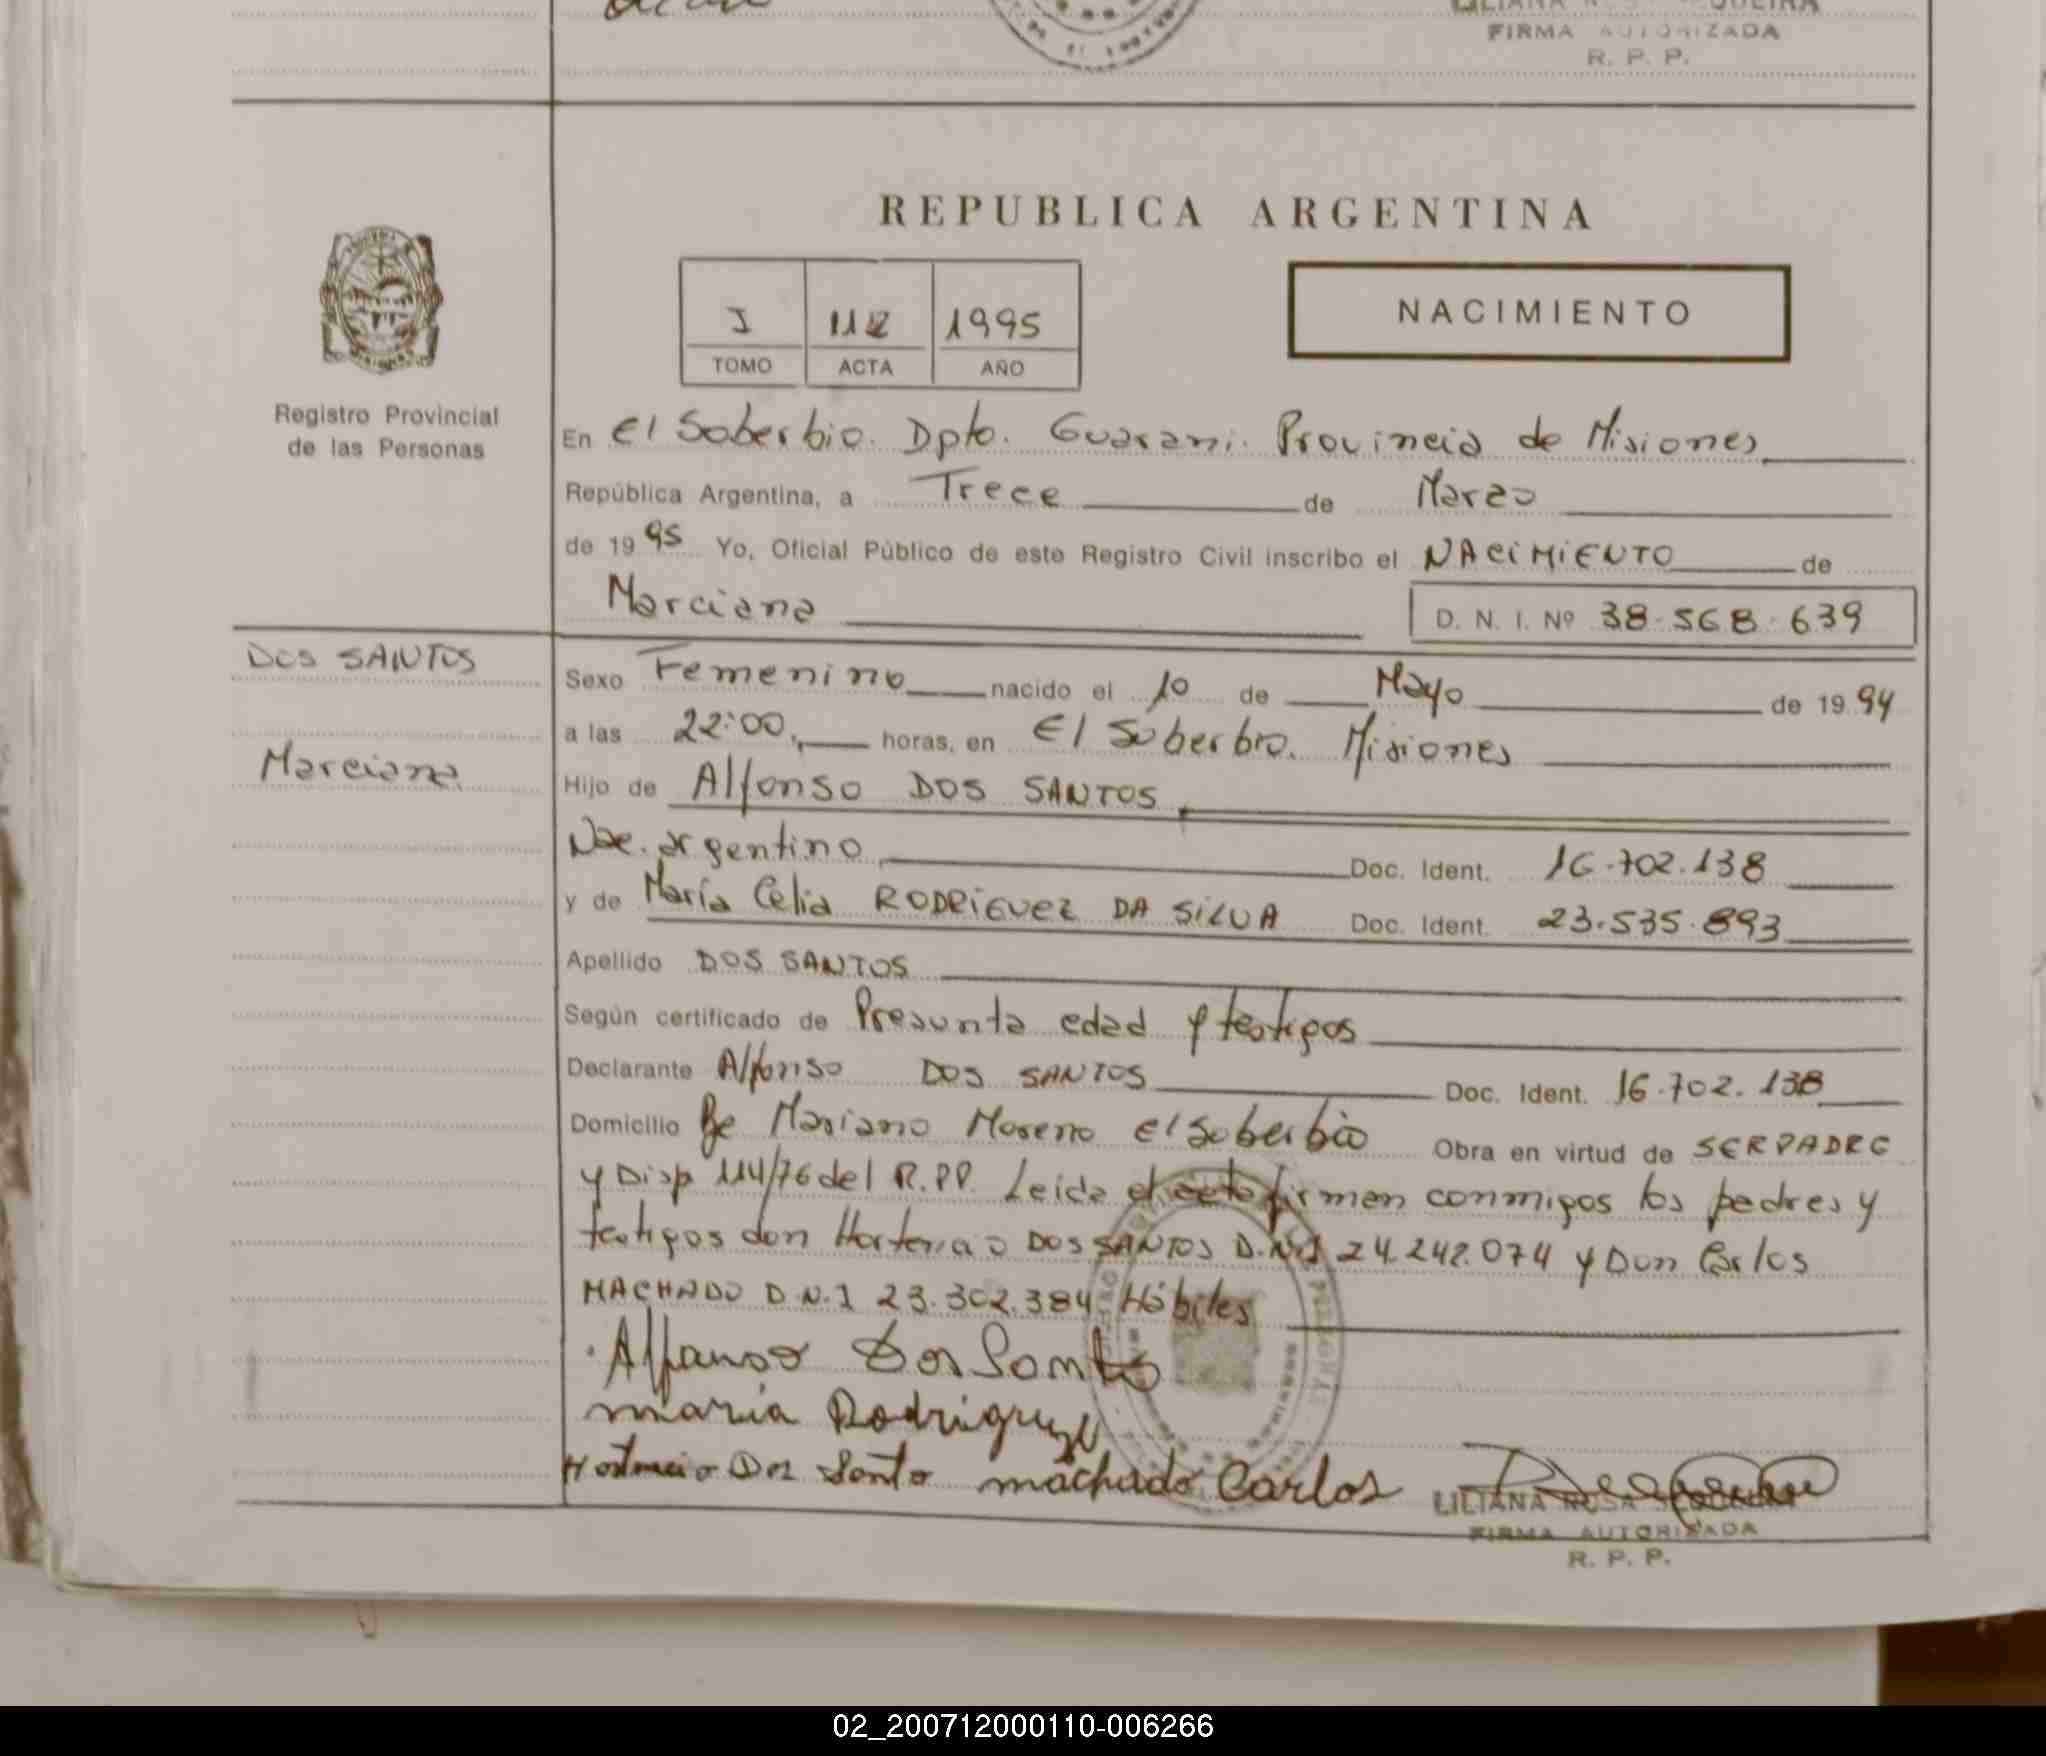 FIRMA AUTORIZADA
R. P. P.
REPUBLICA ARGENTINA
I 112 1995
TOMO ACTA AÑO
NACIMIENTO
Registro Provincial
de las Personas
En El Soberbio. Dpto. Guaraní. Provincia de Misiones
República Argentina, a Trece de Marzo
de 1995 Yo, Oficial Público de este Registro Civil inscribo el NACIMIENTO de
Marciana D. N. I. Nº 38.568.639
DOS SANTOS
Marciana
Sexo Femenino nacido el 10 de Mayo de 1994
a las 22:00, horas, en El Soberbio. Misiones
Hijo de Alfonso DOS SANTOS
Nac. argentino Doc. Ident. 16.702.138
y de María Celia RODRIGUEZ DA SILVA Doc. Ident. 23.535.893
Apellido DOS SANTOS
Según certificado de Presunta edad y testigos
Declarante Alfonso DOS SANTOS Doc. Ident. 16.702.138
Domicilio Mariano Moreno El Soberbio Obra en virtud de SER PADRE
y Disp 114/76 del R.P.P. Leida el acta firman conmigos los padres y
testigos don Hortencio DOS SANTOS D.N.I 24.242.074 y Don Carlos
MACHADO D.N.I 23.302.384 Hábiles
Alfonso Dos Santos
maria Rodriguez
Hortencio Dos Santo machado Carlos
LILIANA ROSA
FIRMA AUTORIZADA
R. P. P.
02_200712000110-006266